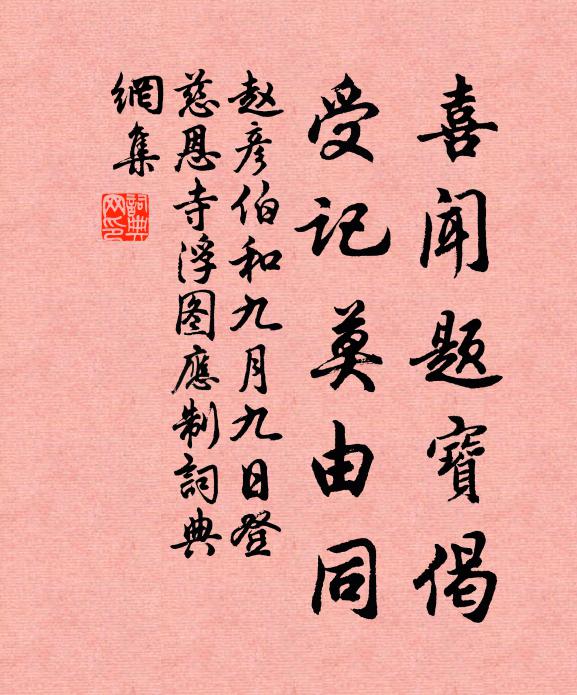 喜闻题寳偈
受记莫由同
赵彦伯和九月九日登
慈恩寺浮图應制词典
網集
詞典網印